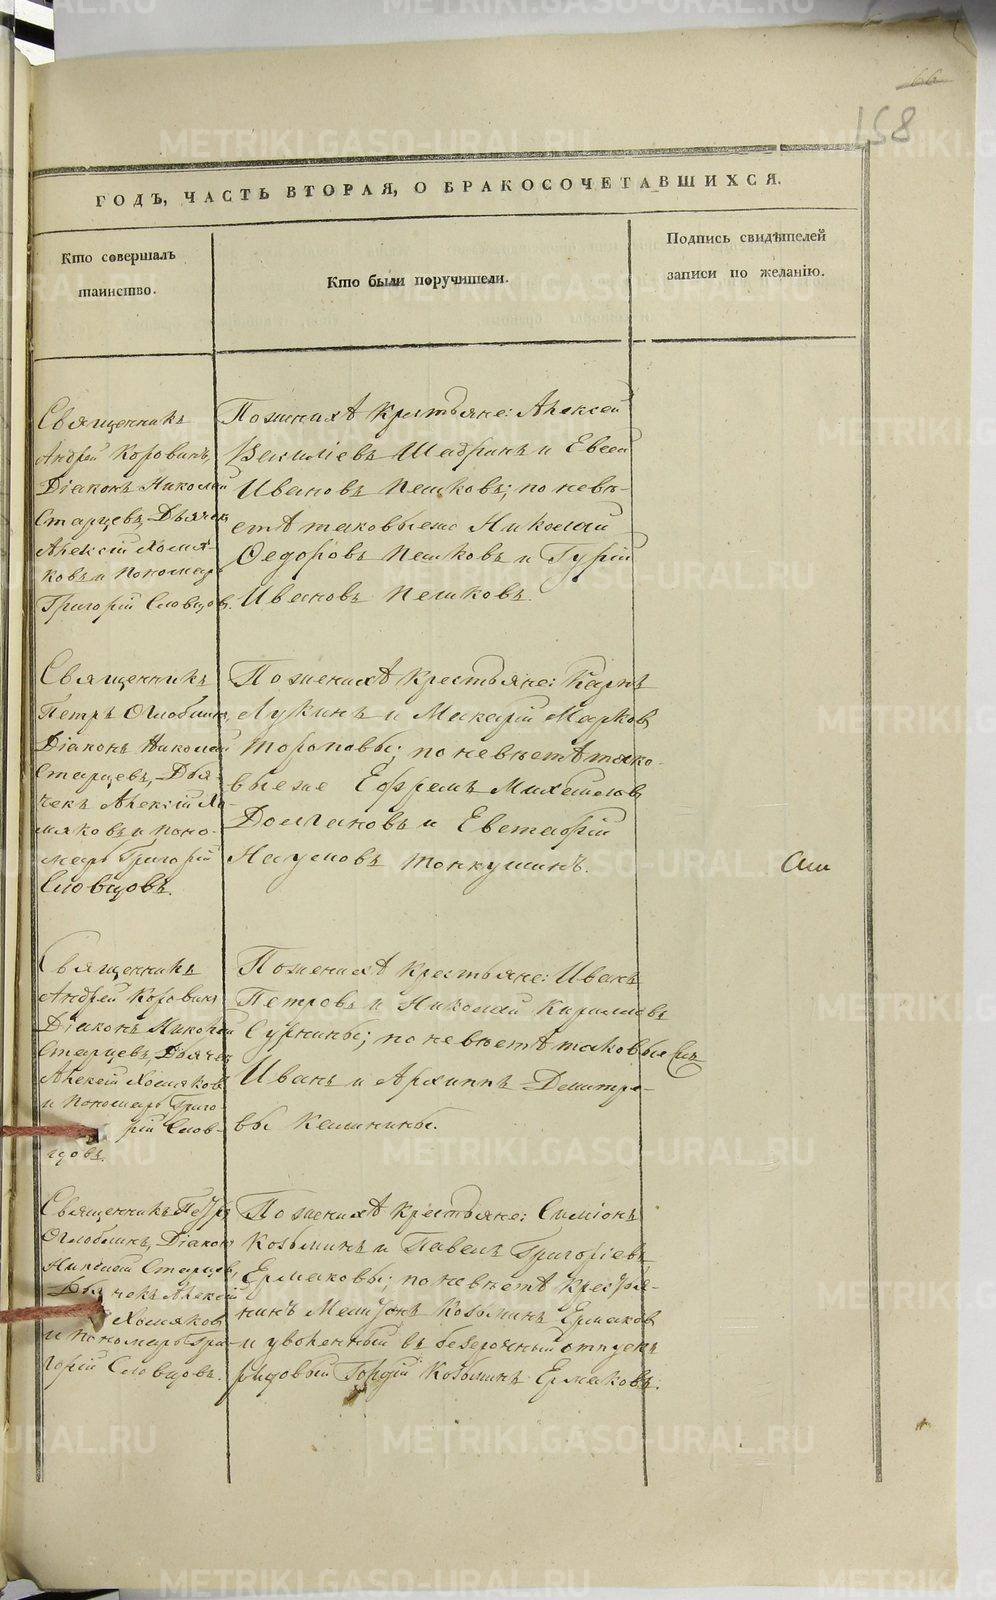 66
158
ГОДЪ, ЧАСТЬ ВТОРАЯ, О БРАКОСОЧЕТАВШИХСЯ.
Кто совершалъ
таинство.
Кто были поручители.
Подпись свидѣтелей
записи по желанію.
Священникъ
Андрей Коровинъ,
Діаконъ Николай
Старцевъ, Дьячек
Алексій Холмя-
ковъ и Пономарь
Григорій Словцовъ.
По женихѣ крестьяне: Алексей
Васильевъ Шадринъ и Евсей
Ивановъ Пешковъ; по невѣ-
стѣ таковые же Николай
Федоровъ Пешковъ и Гурій
Ивановъ Пешковъ.
Священникъ
Петръ Оглоблинъ,
Діаконъ Николай
Старцевъ, Дья-
чекъ Алексій Хо-
лмяковъ и Поно-
марь Григорій
Словцовъ.
По женихѣ крестьяне: Карпъ
Лукинъ и Макарій Марков
Тороповы; по невѣстѣ тако-
вые же Ефремъ Михайловъ
Долгановъ и Евстафій
Наумовъ Тонкушинъ.
Священникъ
Андрей Коровинъ
Діаконъ Николай
Старцевъ, Дьячек
Алексій Холмяков
и Пономарь Григо-
рій Слов-
цовъ.
По женихѣ крестьяне: Иванъ
Петровъ и Николай Кириловъ
Сурнины; по невѣстѣ таковые
Иванъ и Архиппъ Дмитріе-
вы Калинины.
Священникъ Петръ
Оглоблинъ, Діакон
Николай Старцевъ,
Дьячекъ Алексій
Холмяков
и Пономарь Гри-
горій Словцовъ.
По женихѣ крестьяне: Симіонъ
Козьминъ и Павелъ Григоріевъ
Ермаковы; по невѣстѣ кресть-
янинъ Мелитонъ Козьминъ Ермаков
и уволенный въ безсрочный отпускъ
рядовый Гордій Козьминъ Ермаковъ.
METRIKI.GASO-URAL.RU